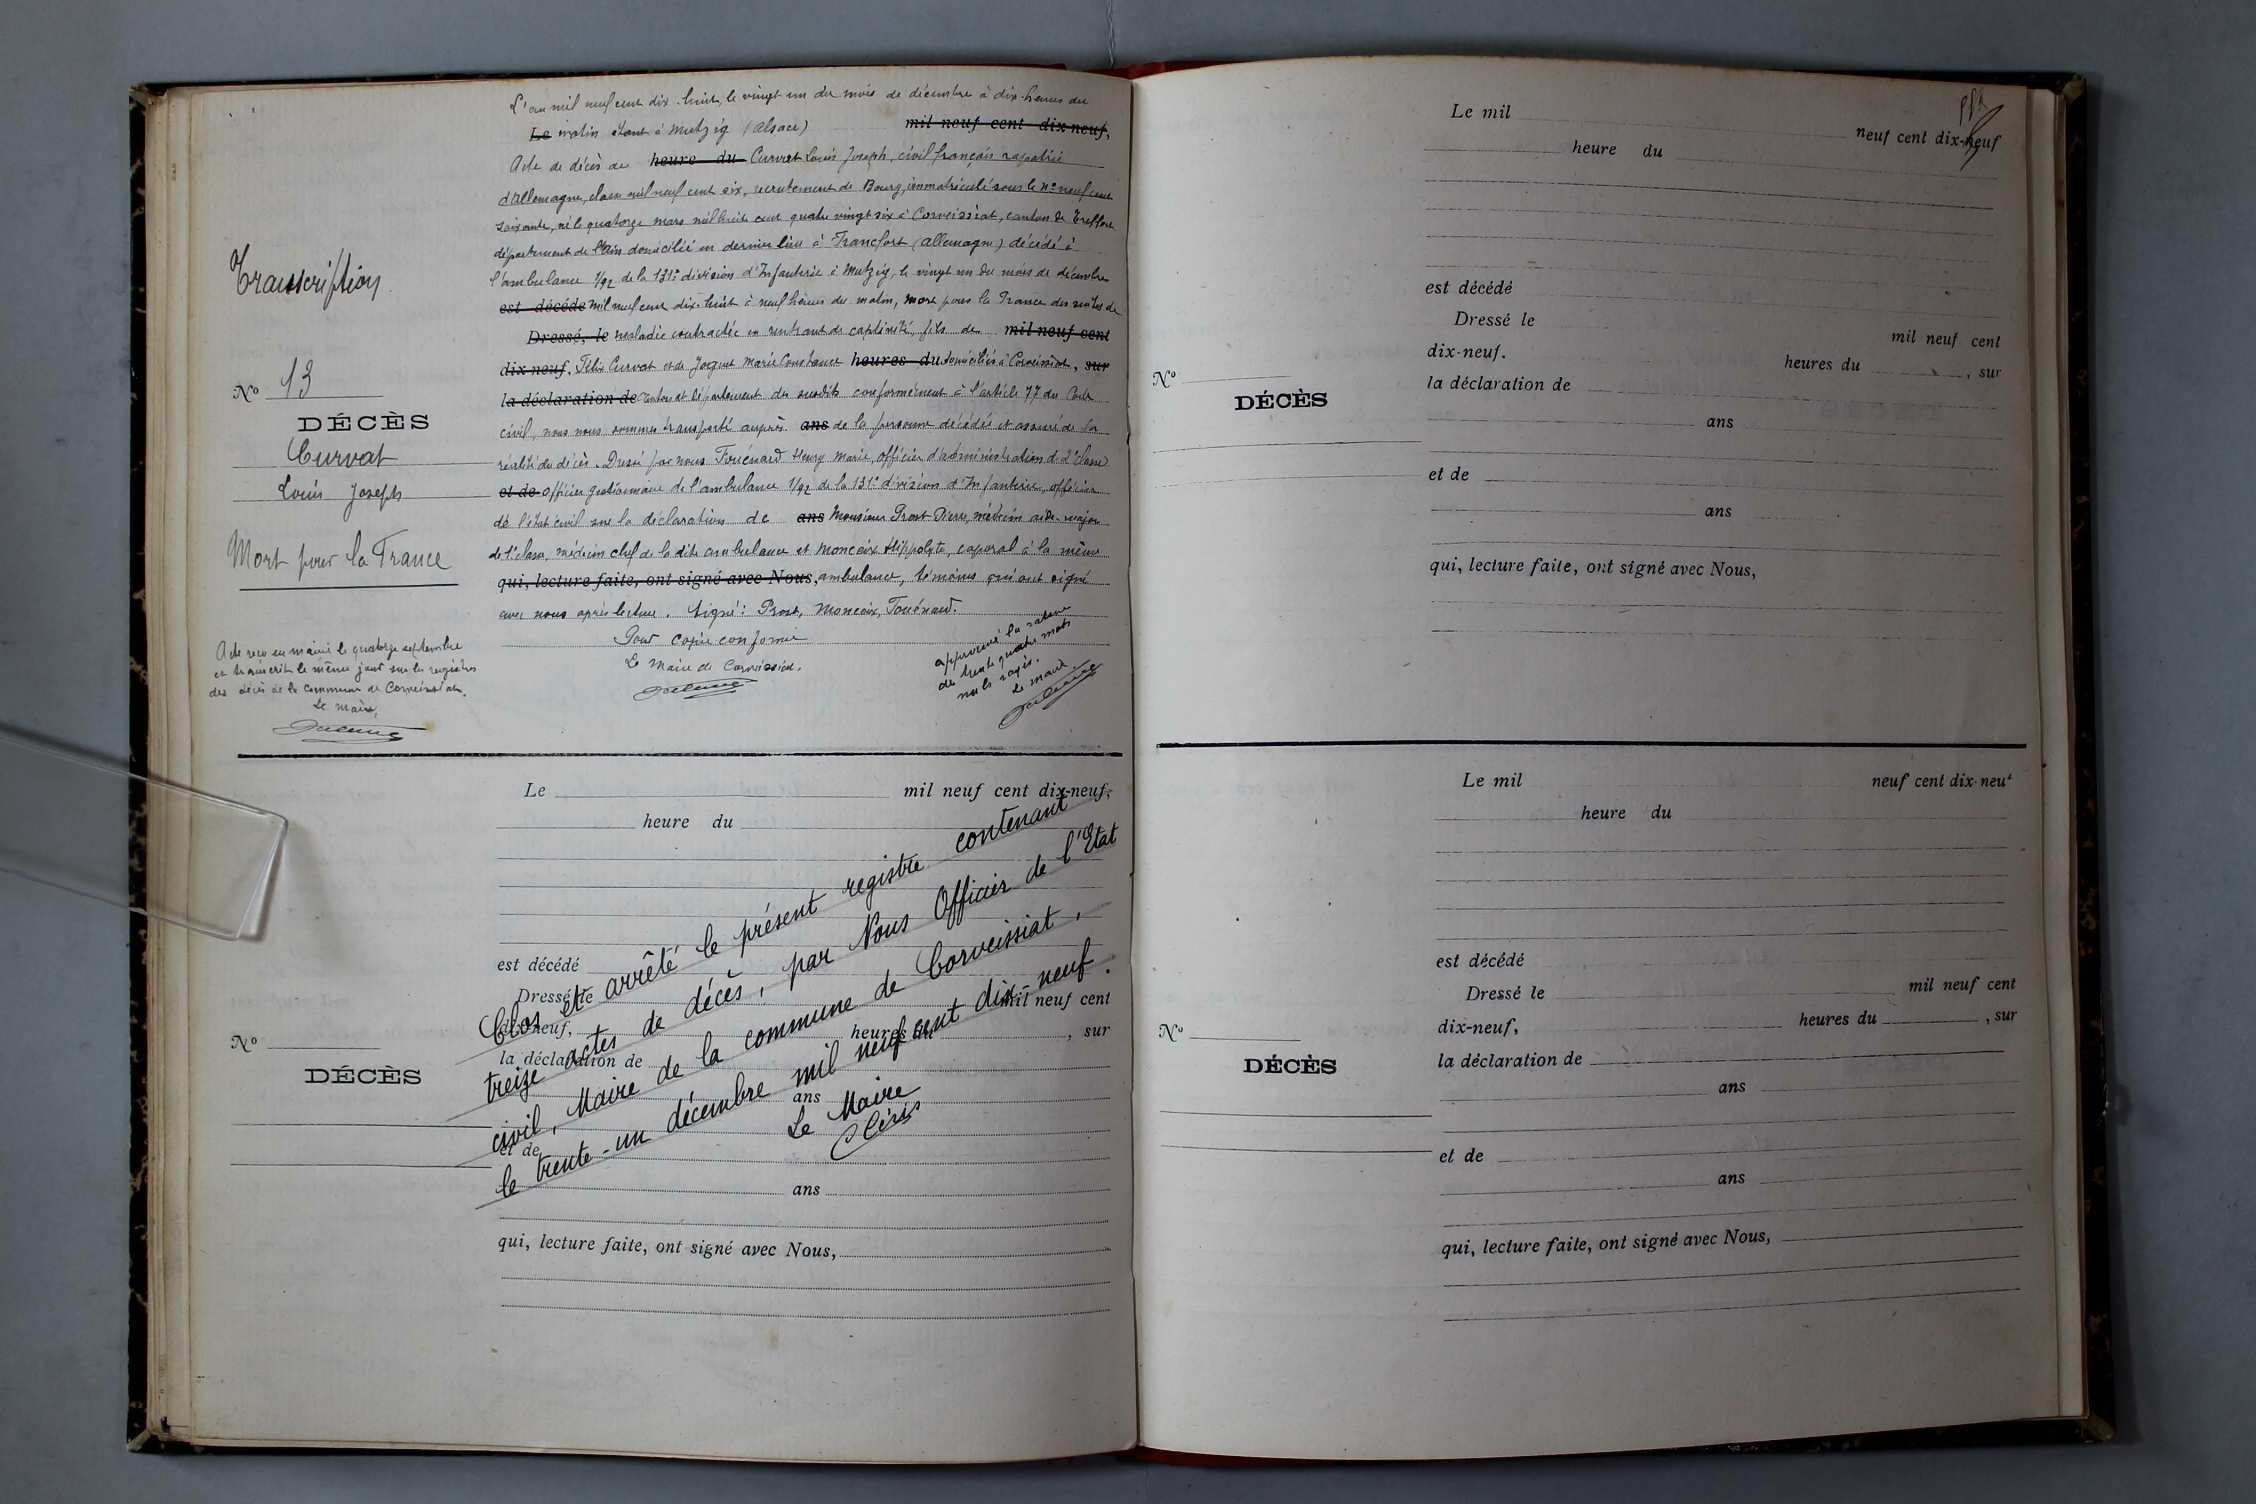 L'an mil neuf cent dix-huit, le vingt un du mois de décembre à dix heures du
Le matin étant à Mutzig (Alsace) mil neuf cent dix-neuf,
Acte de décès de heure du Curvat Louis Joseph, civil français rapatrié
d'Allemagne, classe mil neuf cent six, recrutement de Bourg, immatriculé sous le n° neuf cent
soixante, né le quatorze mars mil huit cent quatre vingt six à Corveissiat, canton de Treffort
département de l'Ain domicilié en dernier lieu à Francfort (Allemagne) décédé à
l'ambulance 1/92 de la 131e division d'Infanterie à Mutzig, le vingt un du mois de décembre
est décédé mil neuf cent dix-huit à neuf heures du matin, mort pour la France des suites de
Dressé, le maladie contractée en rentrant de captivité, fils de mil neuf cent
dix-neuf, Félix Curvat et de Jacquet Marie Constance heures du domiciliés à Corveissiat, sur
la déclaration de canton et département des susdits conformément à l'article 77 du Code
civil, nous nous sommes transporté auprès ans de la personne décédée et assuré de la
réalité du décès. Dressé par nous Fouénard Henry Marie, officier d'administration de 2e classe
et de officier gestionnaire de l'ambulance 1/92 de la 131e division d'Infanterie, officier
de l'état civil sur la déclaration de ans Monsieur Prost Pierre, médecin aide-major
de 1e classe, médecin chef de la dite ambulance et Moncoix Hippolyte, caporal à la même
qui, lecture faite, ont signé avec Nous, ambulance, témoins qui ont signé
avec nous après lecture. Signé: Prost, Moncoix, Fouénard.
Pour copie conforme
Le Maire de Corveissiat.
approuvé la rature
de trente quatre mots
nuls rayés.
Le maire
Transcription
N° 13
DÉCÈS
Curvat
Louis Joseph
Mort pour la France
Acte reçu en mairie le quatorze septembre
et transcrit le même jour sur les registres
des décès de la commune de Corveissiat.
Le maire,
Le mil neuf cent dix-neuf,
heure du
est décédé
Dressé, le mil neuf cent
dix-neuf, heures du , sur
la déclaration de
ans
et de
ans
qui, lecture faite, ont signé avec Nous,
N°
DÉCÈS
Clos et arrêté le présent registre contenant
treize actes de décès, par Nous Officier de l'Etat
civil, Maire de la commune de Corveissiat,
le trente-un décembre mil neuf cent dix-neuf.
Le Maire
Le mil neuf cent dix-neuf
heure du
est décédé
Dressé le mil neuf cent
dix-neuf. heures du , sur
la déclaration de
ans
et de
ans
qui, lecture faite, ont signé avec Nous,
N°
DÉCÈS
Le mil neuf cent dix-neuf
heure du
est décédé
Dressé le mil neuf cent
dix-neuf, heures du , sur
la déclaration de
ans
et de
ans
qui, lecture faite, ont signé avec Nous,
N°
DÉCÈS